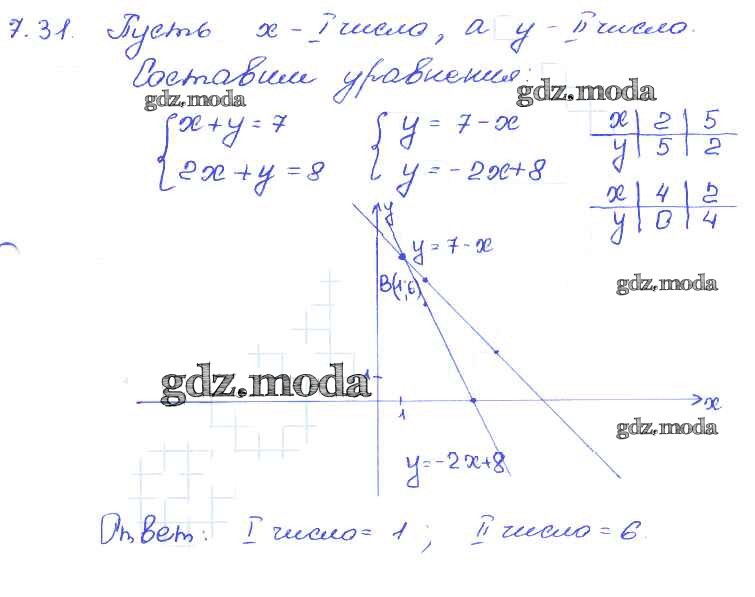 7.31. Пусть x - I число, а y - II число.
Составим уравнения:
gdz.moda
gdz.moda
{ x + y = 7
2x + y = 8
{ y = 7 - x
y = -2x + 8
x | 2 | 5
y | 5 | 2
x | 4 | 2
y | 0 | 4
y
y = 7 - x
B(1;6)
gdz.moda
gdz.moda
1
1
x
gdz.moda
y = -2x + 8
Ответ: I число = 1; II число = 6.